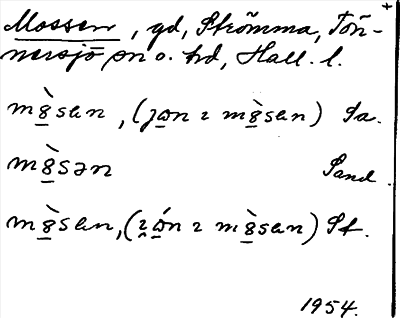 Mossen, gd, Strömma, Tön-
nersjö sn o. hd, Hall. l.
m8̲̀san, (ɟo̲n ı m8̲̀san) Sa.
m8̲̀sən Sand.
m8̲̀san, (ı ó̲n ı m8̲̀san) St.
1954.